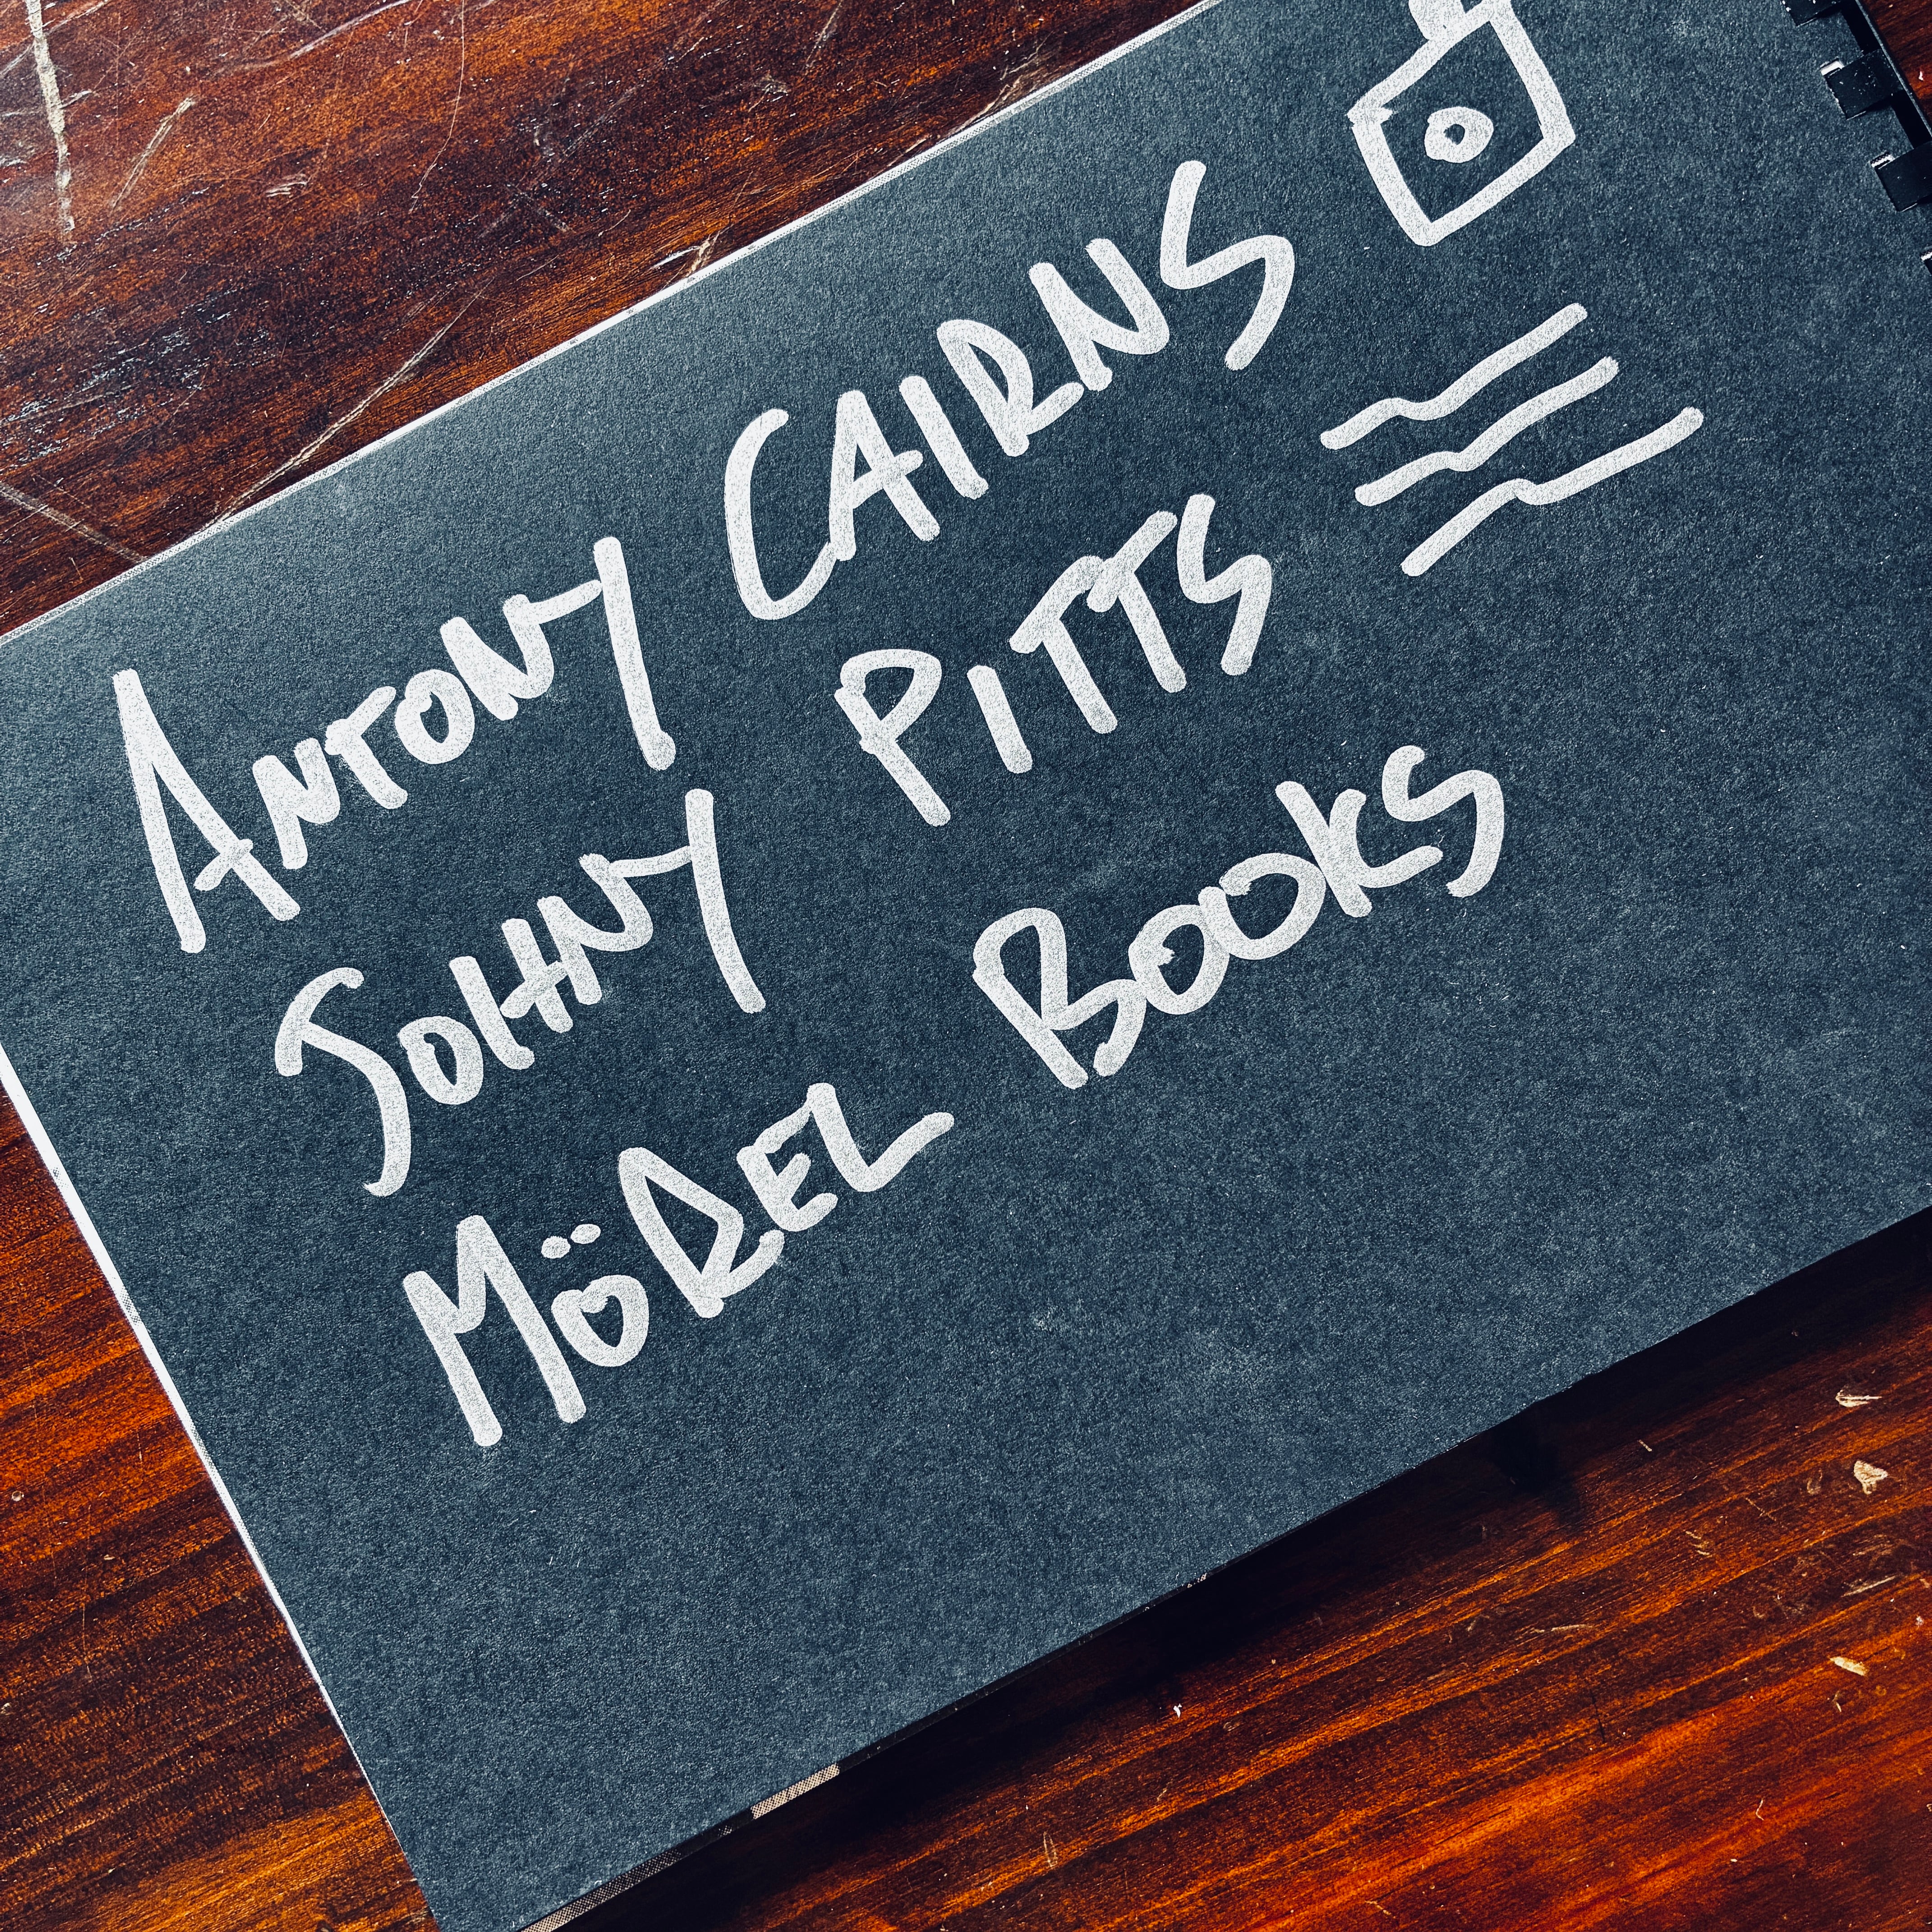 ANTONY CAIRNS
JOHNY PITTS
MÖREL BOOKS